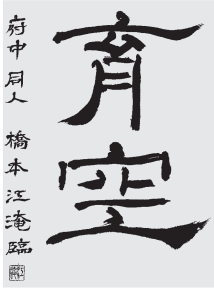 育空
府中同人 橋本江滝臨